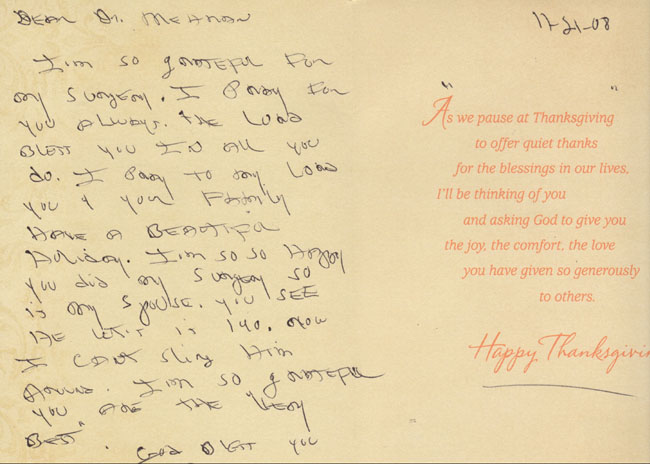 Dear Dr. Meahan
I'm so grateful for
my surgery. I Pray for
you always. the Lord
Bless you IN all you
do. I Pray to my Lord
you & your Family
Have a Beautiful
Holiday. I'm so so Happy
you did my surgery so
is my spouse. you see
He is 140. Now
I can't sling Him
Around. I'm so grateful
you are the very
Best".
God Bless you
11-21-08
"As we pause at Thanksgiving"
to offer quiet thanks
for the blessings in our lives,
I'll be thinking of you
and asking God to give you
the joy, the comfort, the love
you have given so generously
to others.
Happy Thanksgivin